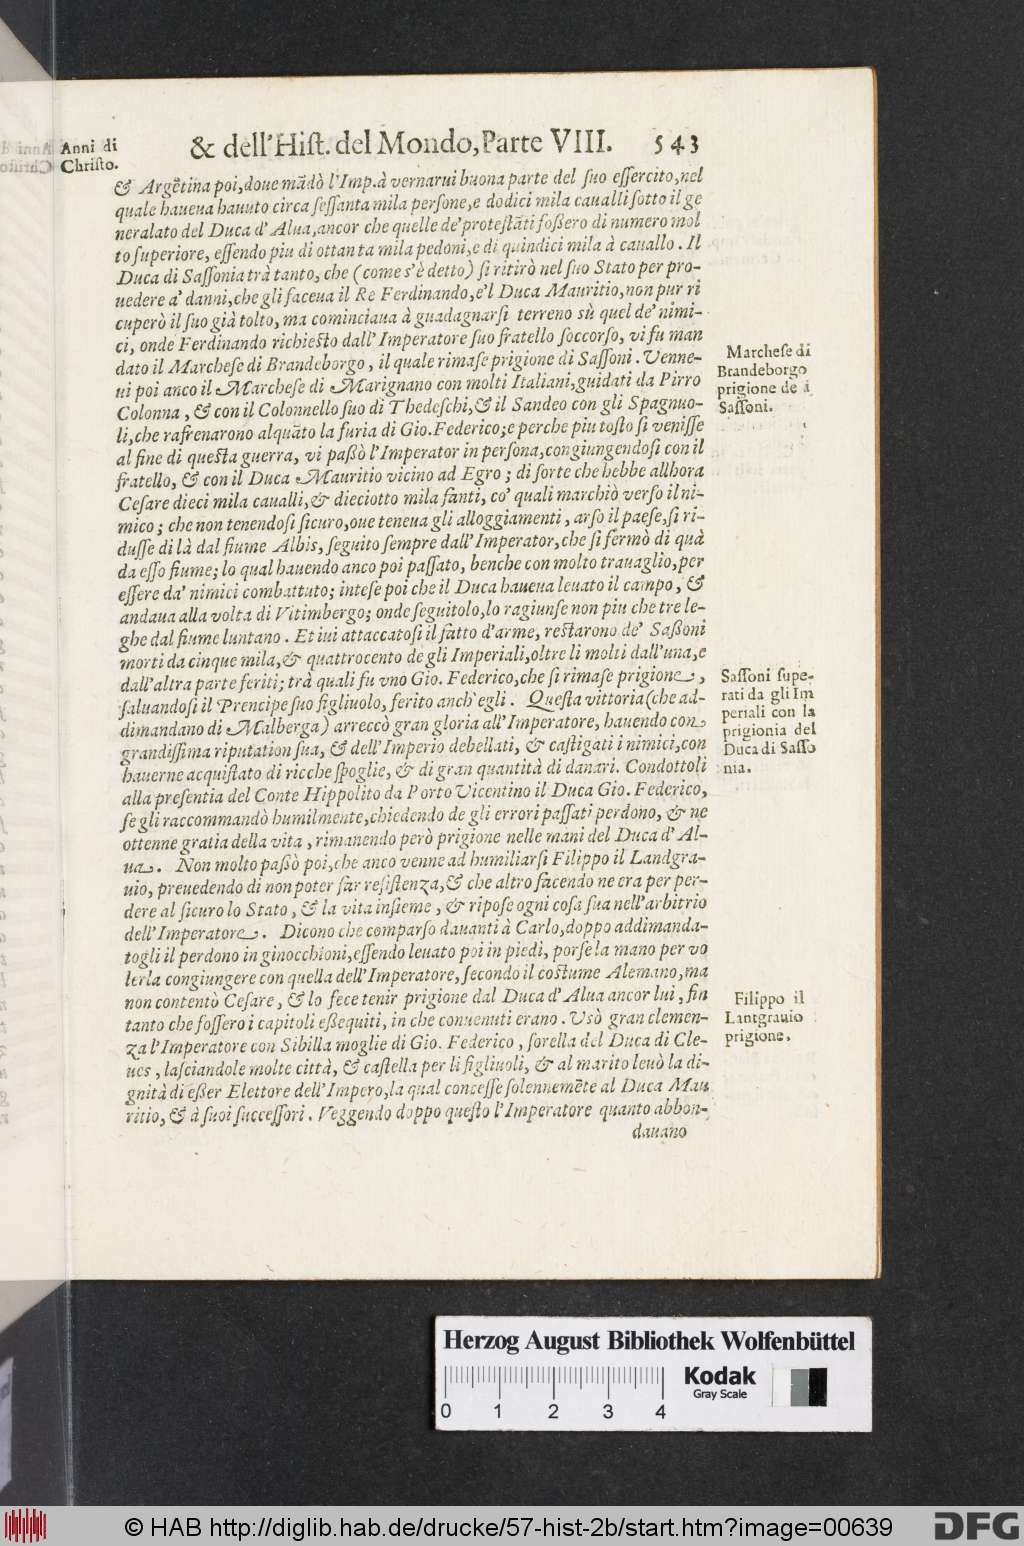 Anni di
Christo.
& dell'Hist. del Mondo, Parte VIII. 543
& Argẽtina poi, doue mãdò l'Imp. à vernarui buona parte del suo essercito, nel
quale haueua hauuto circa sessanta mila persone, e dodici mila caualli sotto il ge
neralato del Duca d'Alua, ancor che quelle de' protestãti foßero di numero mol
to superiore, essendo piu di ottanta mila pedoni, e di quindici mila à cauallo. Il
Duca di Sassonia trà tanto, che (come s'è detto) si ritirò nel suo Stato per pro-
uedere a' danni, che gli faceua il Re Ferdinando, e'l Duca Mauritio, non pur ri
cuperò il suo già tolto, ma cominciaua à guadagnarsi terreno sù quel de' nimi-
ci, onde Ferdinando richiesto dall'Imperatore suo fratello soccorso, vi fu man
dato il Marchese di Brandeborgo, il quale rimase prigione di Sassoni. Venne-
ui poi anco il Marchese di Marignano con molti Italiani, guidati da Pirro
Colonna, & con il Colonnello suo di Thedeschi, & il Sandeo con gli Spagnuo-
li, che rafrenarono alquãto la furia di Gio. Federico; e perche piu tosto si venisse
al fine di questa guerra, vi paßò l'Imperator in persona, congiungendosi con il
fratello, & con il Duca Mauritio vicino ad Egro; di sorte che hebbe allhora
Cesare dieci mila caualli, & dieciotto mila fanti, co' quali marchiò verso il ni-
mico; che non tenendosi sicuro, oue teneua gli alloggiamenti, arso il paese, si ri-
dusse di là dal fiume Albis, seguito sempre dall'Imperator, che si fermò di quà
da esso fiume; lo qual hauendo anco poi passato, benche con molto trauaglio, per
essere da' nimici combattuto; intese poi che il Duca haueua leuato il campo, &
andaua alla volta di Vitimbergo; onde seguitolo, lo ragiunse non piu che tre le-
ghe dal fiume luntano. Et iui attaccatosi il fatto d'arme, restarono de' Saßoni
morti da cinque mila, & quattrocento de gli Imperiali, oltre li molti dall'una, e
dall'altra parte feriti; trà quali fu vno Gio. Federico, che si rimase prigione,
saluandosi il Prencipe suo figliuolo, ferito anch'egli. Questa vittoria (che ad-
dimandano di Malberga) arreccò gran gloria all'Imperatore, hauendo con
grandissima riputation sua, & dell'Imperio debellati, & castigati i nimici, con
hauerne acquistato di ricche spoglie, & di gran quantità di danari. Condottoli
alla presentia del Conte Hippolito da Porto Vicentino il Duca Gio. Federico,
se gli raccommandò humilmente, chiedendo de gli errori passati perdono, & ne
ottenne gratia della vita, rimanendo però prigione nelle mani del Duca d'Al-
ua. Non molto paßò poi, che anco venne ad humiliarsi Filippo il Landgra-
uio, preuedendo di non poter far resistenza, & che altro facendo ne era per per-
dere al sicuro lo Stato, & la vita insieme, & ripose ogni cosa sua nell'arbitrio
dell'Imperatore. Dicono che comparso dauanti à Carlo, doppo addimanda-
togli il perdono in ginocchioni, essendo leuato poi in piedi, porse la mano per vo
lerla congiungere con quella dell'Imperatore, secondo il costume Alemano, ma
non contentò Cesare, & lo fece tenir prigione dal Duca d'Alua ancor lui, fin
tanto che fossero i capitoli eßequiti, in che conuenuti erano. Usò gran clemen-
za l'Imperatore con Sibilla moglie di Gio. Federico, sorella del Duca di Cle-
ues, lasciandole molte città, & castella per li figliuoli, & al marito leuò la di-
gnità di eßer Elettore dell'Impero, la qual concesse solennemẽte al Duca Mau
ritio, & à suoi successori. Veggendo doppo questo l'Imperatore quanto abbon-
dauano
Marchese di
Brandeborgo
prigione de i
Sassoni.
Sassoni supe-
rati da gli Im
periali con la
prigionia del
Duca di Sasso
nia.
Filippo il
Lantgrauio
prigione.
Herzog August Bibliothek Wolfenbüttel
Kodak
Gray Scale
0 1 2 3 4
© HAB http://diglib.hab.de/drucke/57-hist-2b/start.htm?image=00639
DFG